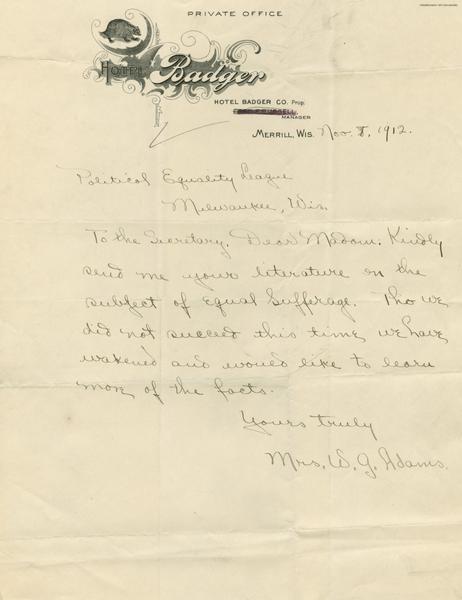 PRIVATE OFFICE
HOTEL
Badger
HOTEL BADGER CO. Prop.
MANAGER
MERRILL, WIS. Nov. 8, 1912.
Political Equality League
Milwaukee, Wis.
To the Secretary. Dear Madam: Kindly
send me your literature on the
subject of Equal Sufferage. Tho we
did not succeed this time, we have
wakened and would like to learn
more of the facts.
Yours truly
Mrs. W. G. Adams.